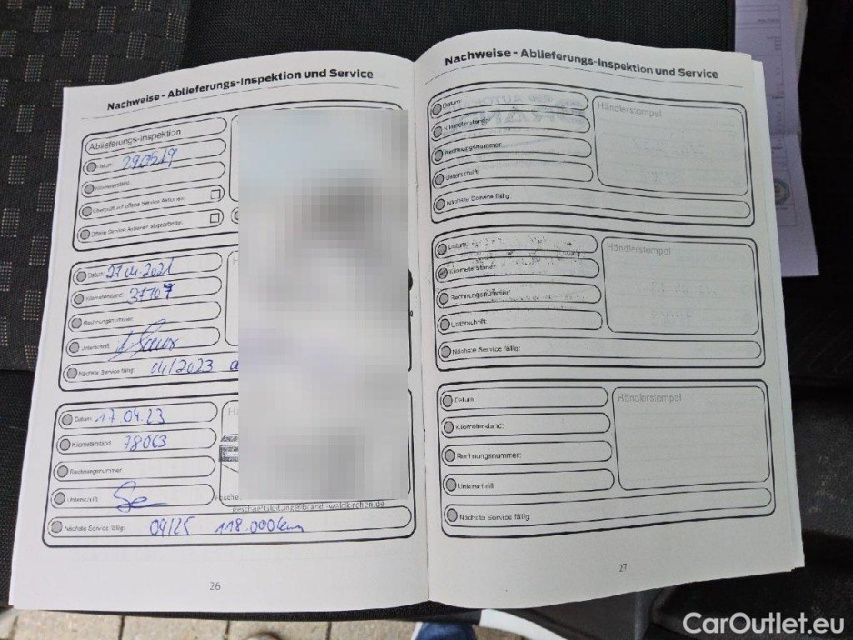 Nachweise - Ablieferungs-Inspektion und Service
Ablieferungs-Inspektion
Datum: 290519
Kilometerstand:
Überprüft auf offene Service Aktionen:
Offene Service Aktionen abgearbeitet:
Datum: 27.04.2021
Kilometerstand: 37707
Rechnungsnummer:
Unterschrift:
Nächste Service fällig: 04/2023
Datum: 17.04.23
Kilometerstand: 78063
Rechnungsnummer:
Unterschrift:
Nächste Service fällig: 04/25 118.000km
26
Nachweise - Ablieferungs-Inspektion und Service
Datum:
Händlerstempel
Kilometerstand:
Rechnungsnummer:
Unterschrift:
Nächste Service fällig:
Datum:
Händlerstempel
Kilometerstand:
Rechnungsnummer:
Unterschrift:
Nächste Service fällig:
Datum:
Händlerstempel
Kilometerstand:
Rechnungsnummer:
Unterschrift:
Nächste Service fällig:
27
CarOutlet.eu